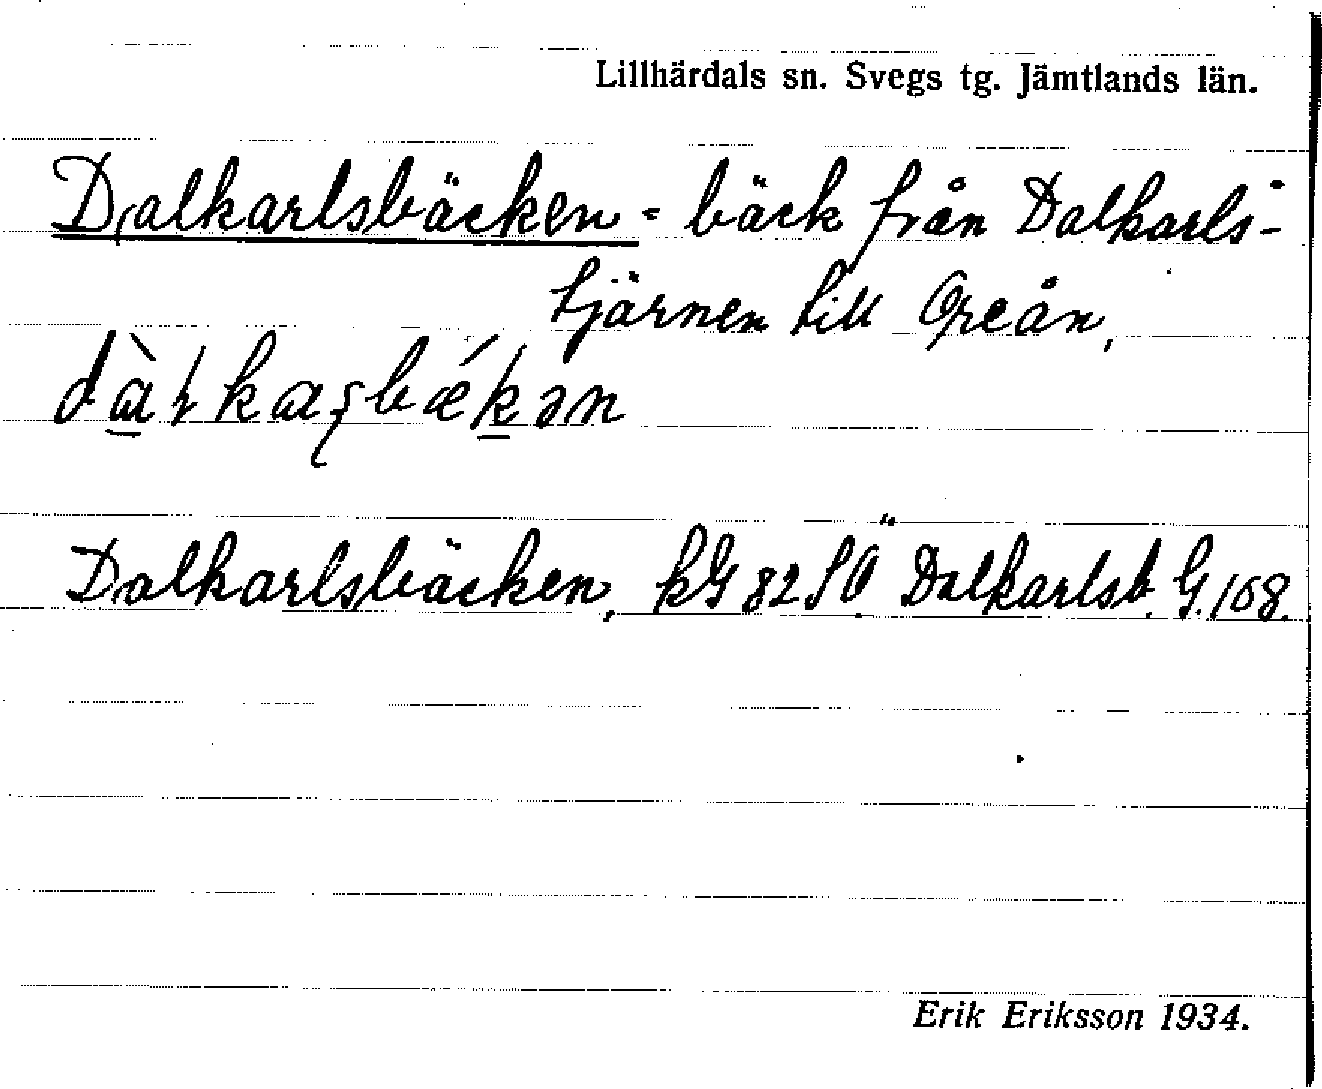 Lillhärdals sn. Svegs tg. Jämtlands län.
Dalkarlsbäcken = bäck från Dalkarls-
tjärnen till Oreån,
Dalkarlsbäcken, kG 82 SÖ. Dalkarlsb. G. 168.
Erik Eriksson 1934.